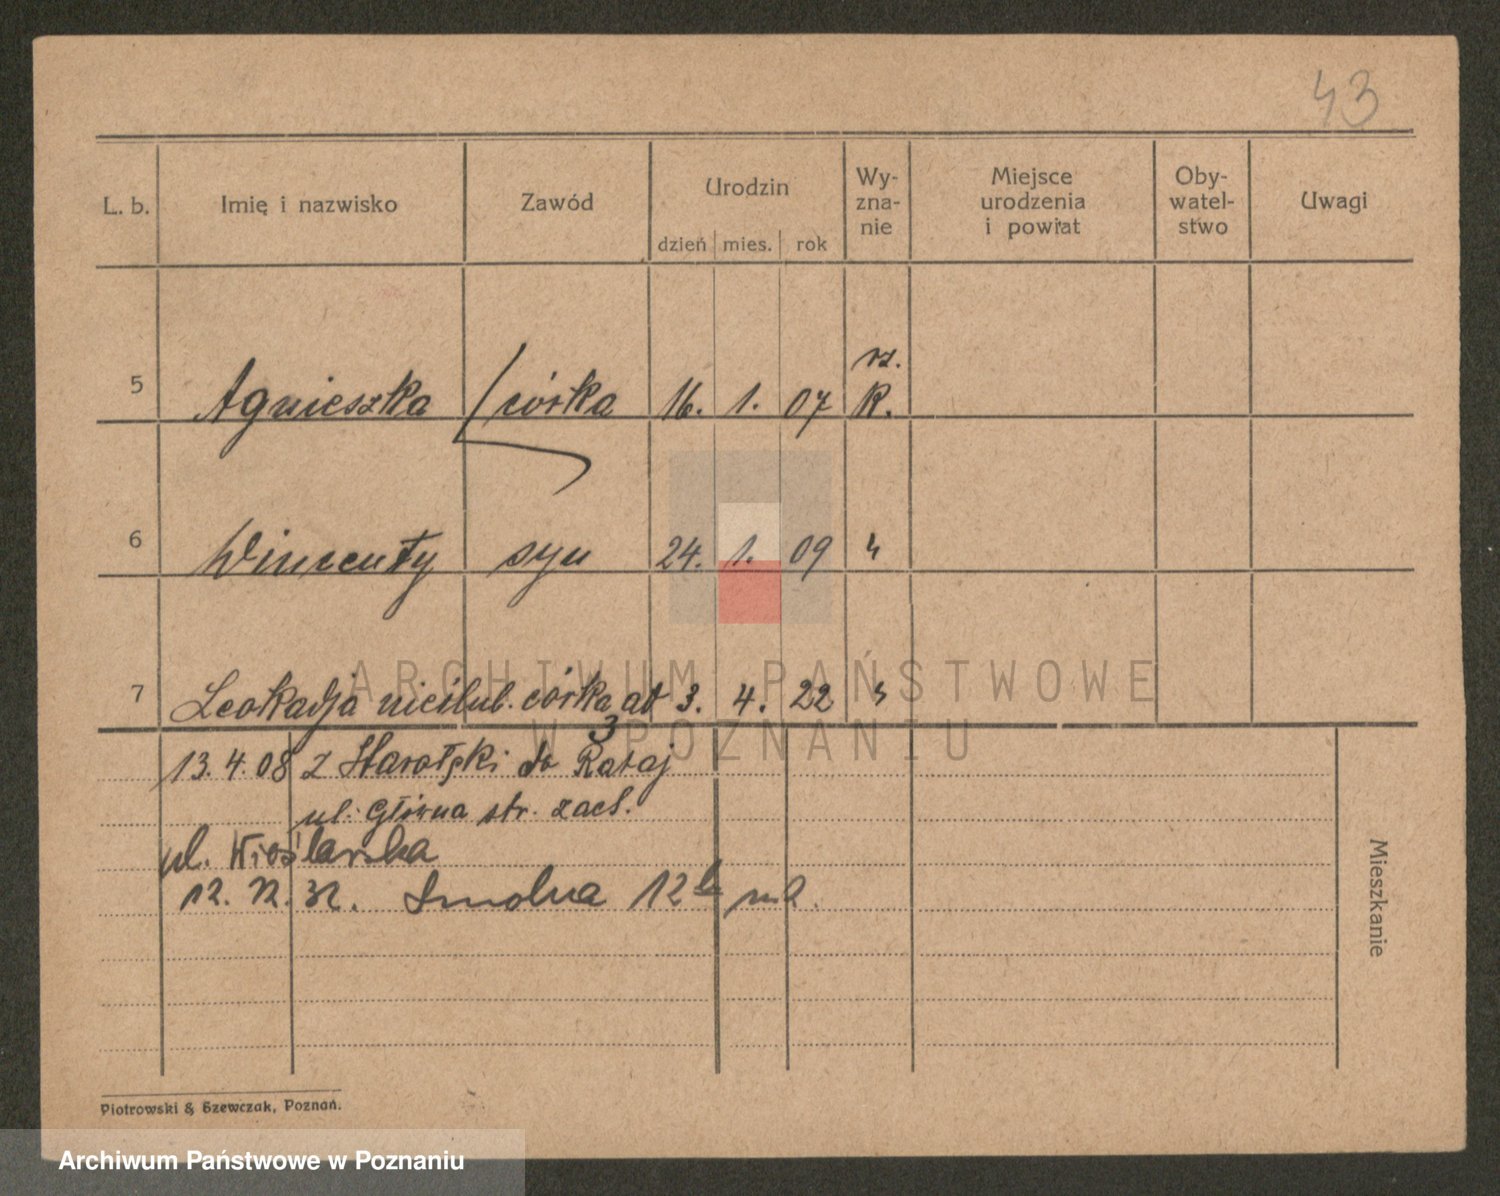 43
L. b. Imię i nazwisko Zawód Urodzin Wy-zna-nie Miejsce urodzenia i powiat Oby-watel-stwo Uwagi
dzień mies. rok
rz.
5 Agnieszka córka 16. 1. 07 K.
6 Wincenty syn 24. 1. 09 "
7 Leokadja nieślub. córka ad 3 3. 4. 22 "
13.4.08 z Starołęki do Rataj
ul. Główna str. zach.
ul. Wioślarska
12. 12. 32. Smolna 12b
Mieszkanie
Piotrowski & Szewczak, Poznań.
ARCHIWUM PAŃSTWOWE
W POZNANIU
Archiwum Państwowe w Poznaniu